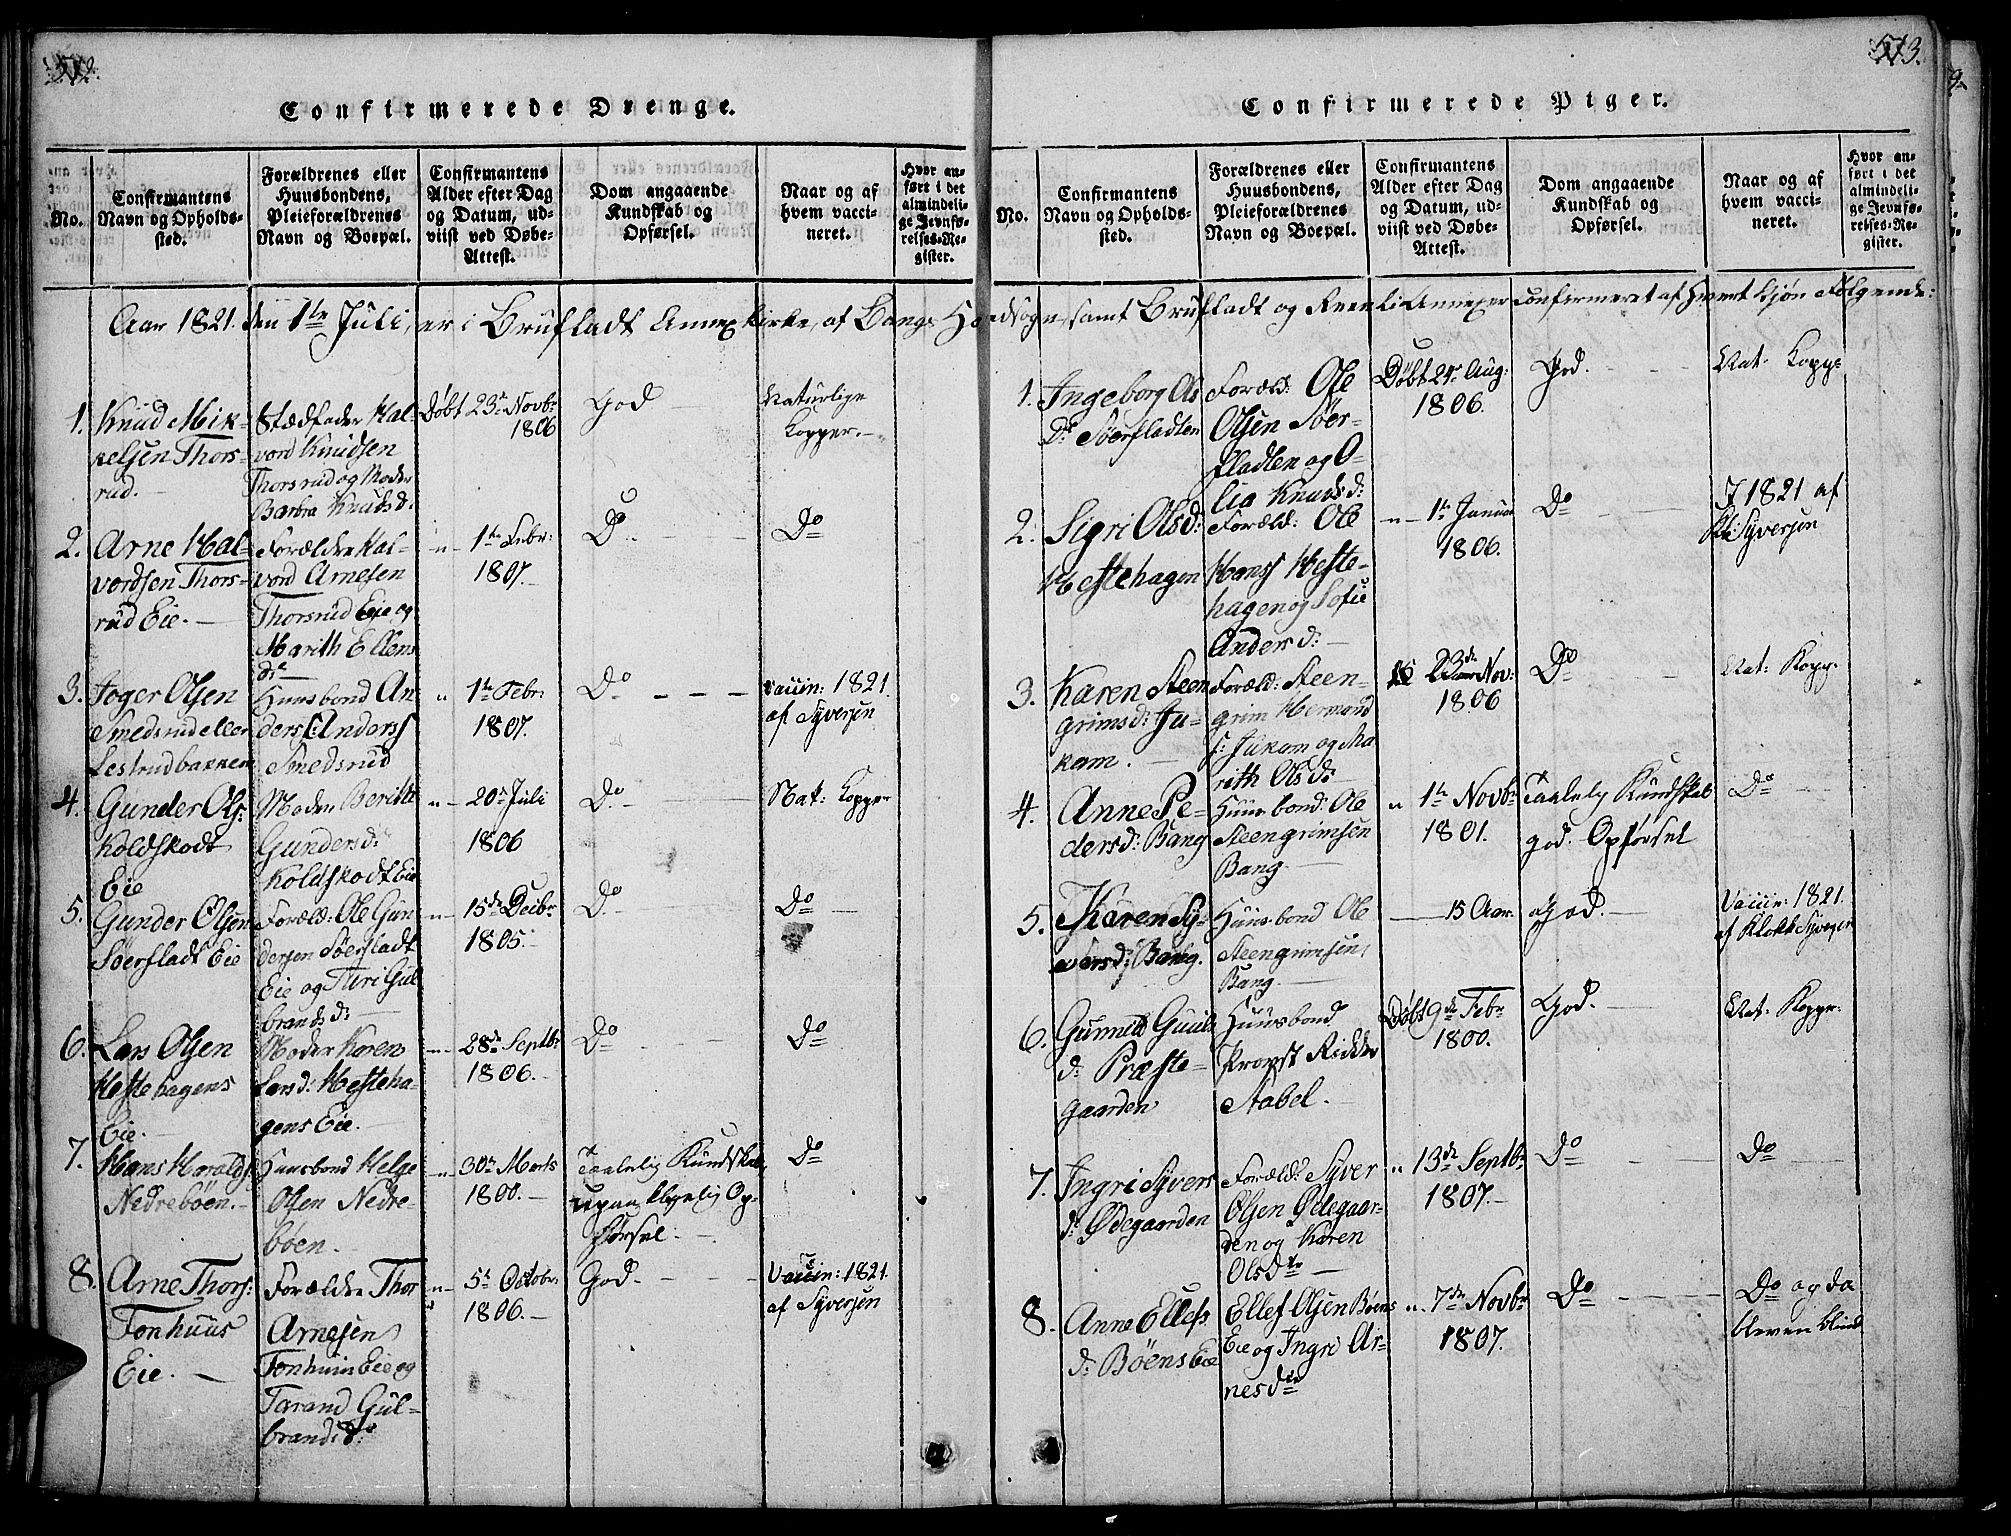 512.
Confirmerede Drenge.
No.
Confirmantens Navn og Opholdssted.
Forældrenes eller Huusbondens, Pleieforældrenes Navn og Boepæl.
Confirmantens Alder efter Dag og Datum, udviist ved Døbe-Attest.
Dom angaaende Kundskab og Opførsel.
Naar og af hvem vaccineret.
Hvor anført i det almindelige Jevnførelses-Register.
Aar 1821. den 1te Juli, er i Brufladt Annexkirke, af Bangs Hovedsogn, samt Brufladt og Reenli Annexer confirmeret af Hvert Kjøn Følgende:
1.
Knud Mik-
kelsen Thors-
rud.
Stædfader Hal-
vord Knudsen
Thorsrud og Moder
Barbra Knudsd:
Døbt 23de Novbr
1806
God
Naturlige
Kopper.
2.
Arne Hal-
vordsen Thors-
rud Eie.
Forældre Hal-
vord Arnesen
Thorsrud Eie og
Marith Ellens
dr
" 1te Febr:
1807.
Do
Do
3.
Joger Olsen
Smedsrud eller
Lestrudbakken
Huusbond An-
ders Anderss
Smedsrud
" 1te Febr:
1807.
Do
Vaccin: 1821
af Syversen
4.
Gunder Ols:
Koldskodt
Eie
Moder Berith
Gundersd:
Koldskodt Eie
" 20de Juli
1806
Do
Nat: Kopper
5.
Gunder Olsen
Søerfladt Eie
Foræld: Ole Gun
dersen Søerfladt
Eie og Turi Gul
brandsd:
" 15de Decbr
1805.
Do
Do
6.
Lars Olsen
Hestehagens
Eie.
Moder Karen
Larsd: Hesteha-
gens Eie.
28de Septbr
1806.
Do
Do
7.
Hans Haralds
Nedrebøen.
Huusbond Helge
Olsen Nedre-
bøen.
" 30te Marts
1800.
Taalelig Kundskab,
upaaklagelig Op-
førsel.
Do
8.
Arne Thors:
Tonhuus
Eie.
Forældre Thor
Arnesen
Tonhuus Eie og
Tarand Gul-
brandsd:
" 5te Octobr:
1806.
God.
Vaccin: 1821
af Syversen
513.
Confirmerede Piger.
No.
Confirmantens Navn og Opholdssted.
Forældrenes eller Huusbondens, Pleieforældrenes Navn og Boepæl.
Confirmantens Alder efter Dag og Datum, udviist ved Døbe-Attest.
Dom angaaende Kundskab og Opførsel.
Naar og af hvem vaccineret.
Hvor anført i det almindelige Jevnførelses-Register.
1.
Ingeborg Ols
Dr Søerfladten
Foræld: Ole
Olsen Søer-
fladten og O-
lia Knudsd:
Døbt 24de Aug:
1806.
God.
Nat: Kopp:
2.
Sigri Olsd:
Hestehagen
Foræld: Ole
Hanss Heste-
hagen og Sofie
Andersd:
" 1te Januar
1806.
Do
I 1821 af
Syversen
3.
Karen Steen
grimsd: Ju-
kam.
Foræld: Steen-
grim Hermand
s: Jukam og Ma
rith Olsd:
23de Nov:
1806
Do
Nat: Kopp:
4.
Anne Pe-
dersd: Bang
Huusbond: Ole
Steengrimsen
Bang
" 1te Novbr
1801.
Taalelig Kundskab
god Opførsel
Do
5.
Karen Sy-
versd: Bang.
Huusbond Ole
Steengrimsen,
Bang.
15 Aar.
God.
Vaccin: 1821.
af Klokk Syversen
6.
Gunnild Guuls
d: Præste-
gaarden
Huusbond
Provst Ridder
Stabel.
Døbt 9de Febr
1800.
God.
Nat: Kopper.
7.
Ingri Syvers
d: Ødegaarden
Foræld: Syver
Olsen Ødegaar-
den og Karen
Olsdtr
" 13de Septbr
1807.
Do
Do
8.
Anne Ellefs
d: Bøens Eie
Ellef Olsen Bøens
Eie og Ingri Ar-
nesdtr
" 7de Novbr
1807.
Do
Do og da
bleven blind